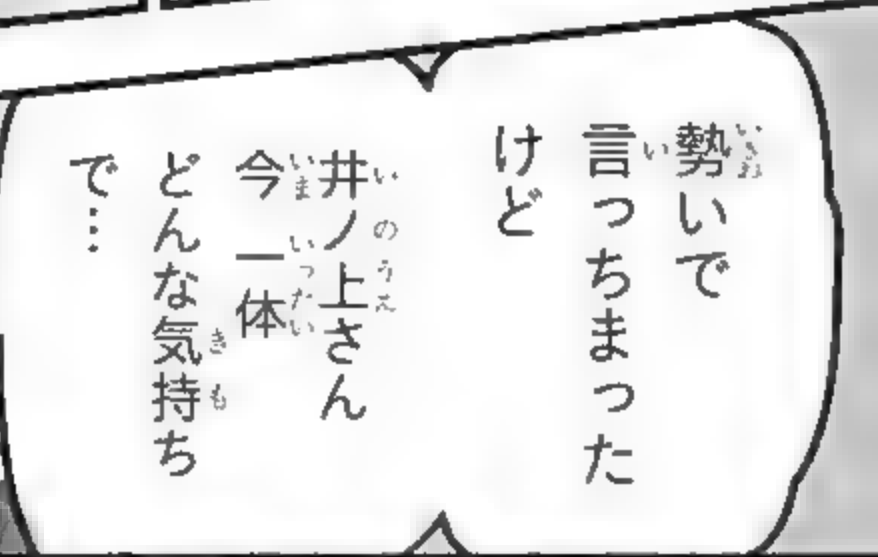 勢いで
言っちまった
けど
井ノ上さん
今 一体
どんな気持ち
で…